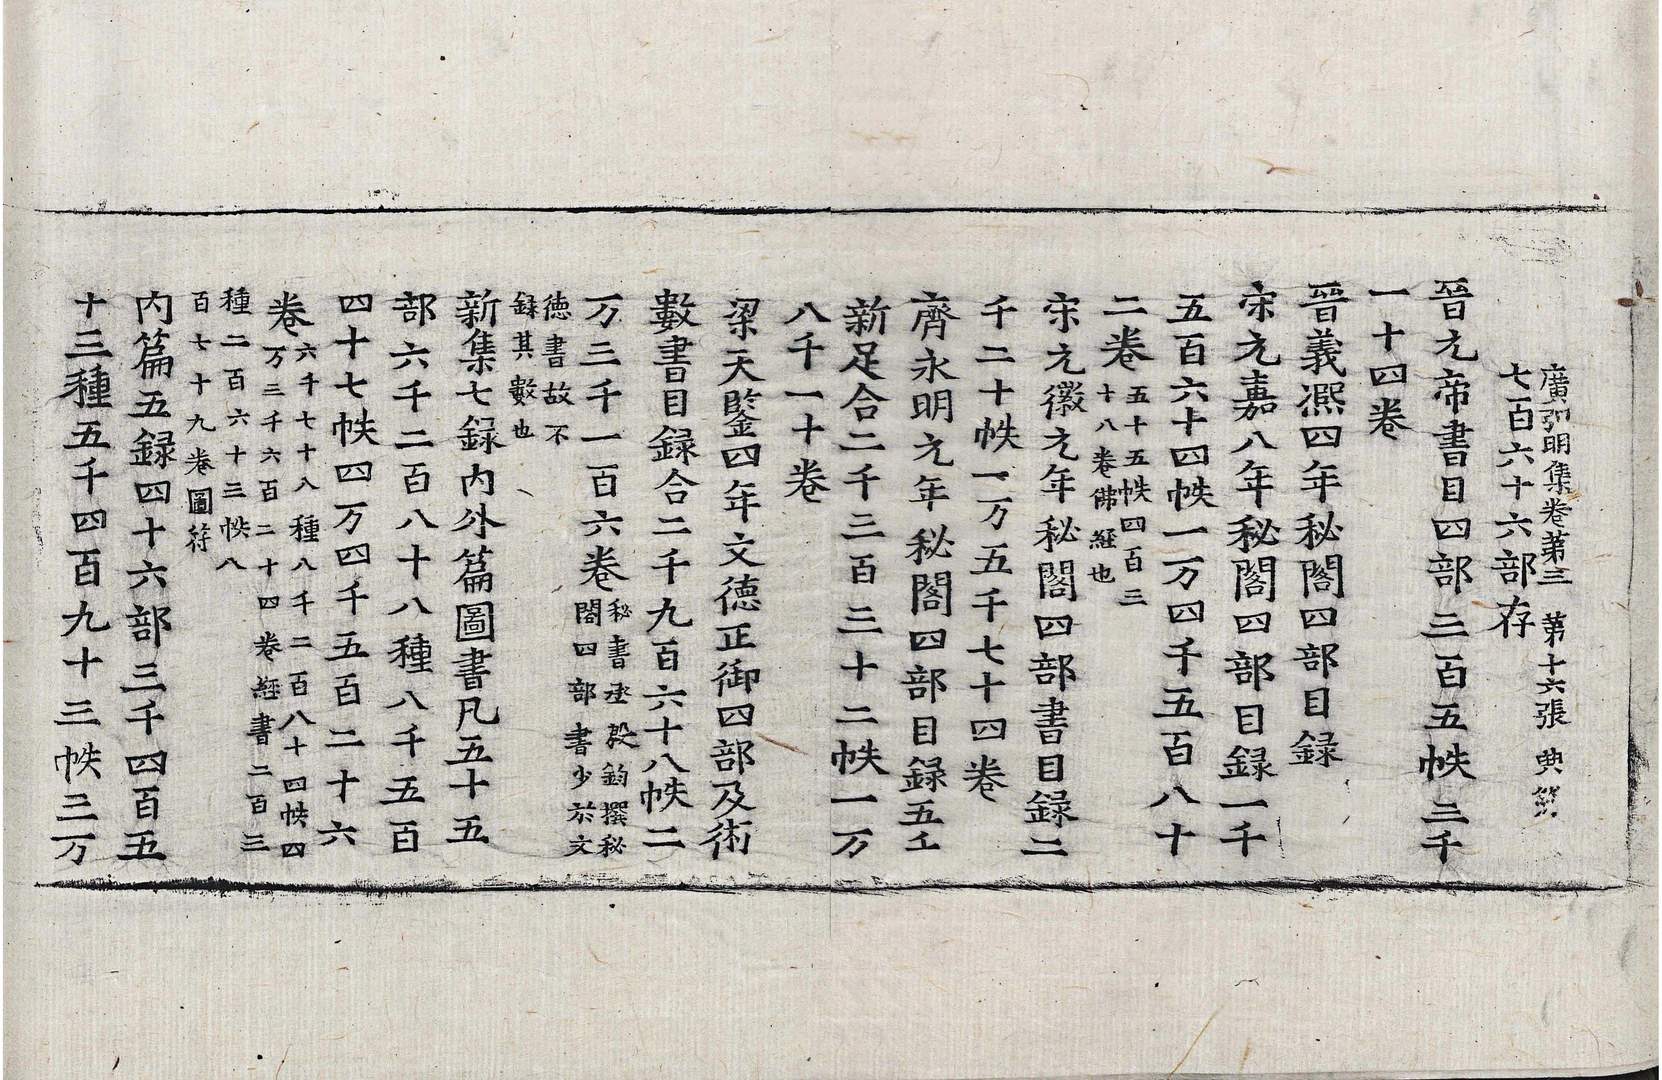 廣弘明集卷第三　第十六張　典
七百六十六部存
晉元帝書目四部三百五帙三千
一十四卷
晉義凞四年秘閣四部目録
宋元嘉八年秘閣四部目録一千
五百六十四帙一万四千五百八十
二卷五十五帙四百三
十八卷佛經也
宋元徽元年秘閣四部書目録二
千二十帙一万五千七十四卷
齊永明元年秘閣四部目録五千
新足合二千三百三十二帙一万
八千一十卷
梁天鑒四年文德正御四部及術
數書目録合二千九百六十八帙二
万三千一百六卷秘書丞殷鈞撰秘
閣四部書少於文
德書故不
録其數也
新集七録内外篇圖書凡五十五
部六千二百八十八種八千五百
四十七帙四万四千五百二十六
卷六千七十八種八千二百八十四帙四
万三千六百二十四卷經書二百三
種二百六十三帙八
百七十九卷圖符
内篇五録四十六部三千四百五
十三種五千四百九十三帙三万